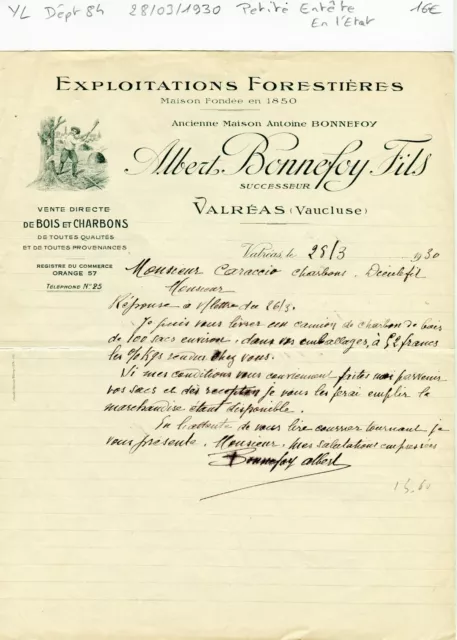 YL Dépt 84 28/03/1930 Petite Entête 16€
En l'Etat
EXPLOITATIONS FORESTIÈRES
Maison Fondée en 1850
Ancienne Maison Antoine BONNEFOY
Albert Bonnefoy Fils
SUCCESSEUR
VALRÉAS (Vaucluse)
VENTE DIRECTE
DE BOIS ET CHARBONS
DE TOUTES QUALITÉS
ET DE TOUTES PROVENANCES
REGISTRE DU COMMERCE
ORANGE 57
TÉLÉPHONE N° 25
Valréas, le 28/3 1930
Monsieur Caraccio Charbons. Dieulefit
Monsieur
Réponse à v/lettre du 26/3.
Je puis vous livrer un camion de charbon de bois
de 100 sacs environ, dans vos emballages, à 52 francs
les % kgs rendus chez vous.
Si mes conditions vous conviennent faites moi parvenir
vos sacs et dès reception je vous les ferai emplir la
marchandise étant disponible.
En l'attente de vous lire courrier tournant je
vous présente, Monsieur, mes salutations empressées
Bonnefoy albert